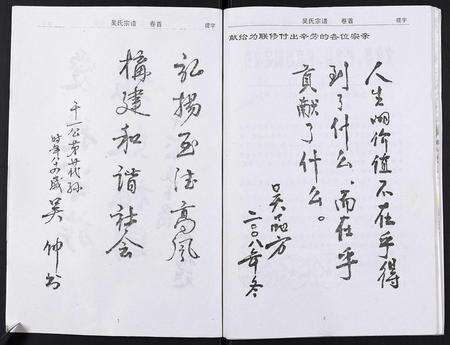 吴氏宗谱 卷首 题字
弘扬至德高风
構建和谐社会
千一公第廿代孙
时年八十四歲 吴仲书
1
吴氏宗谱 卷首 题字
献给为联修付出辛劳的各位宗亲
人生的价值不在乎得
到了什么，而在乎
贡献了什么。
吴品方
二〇〇八年冬
1